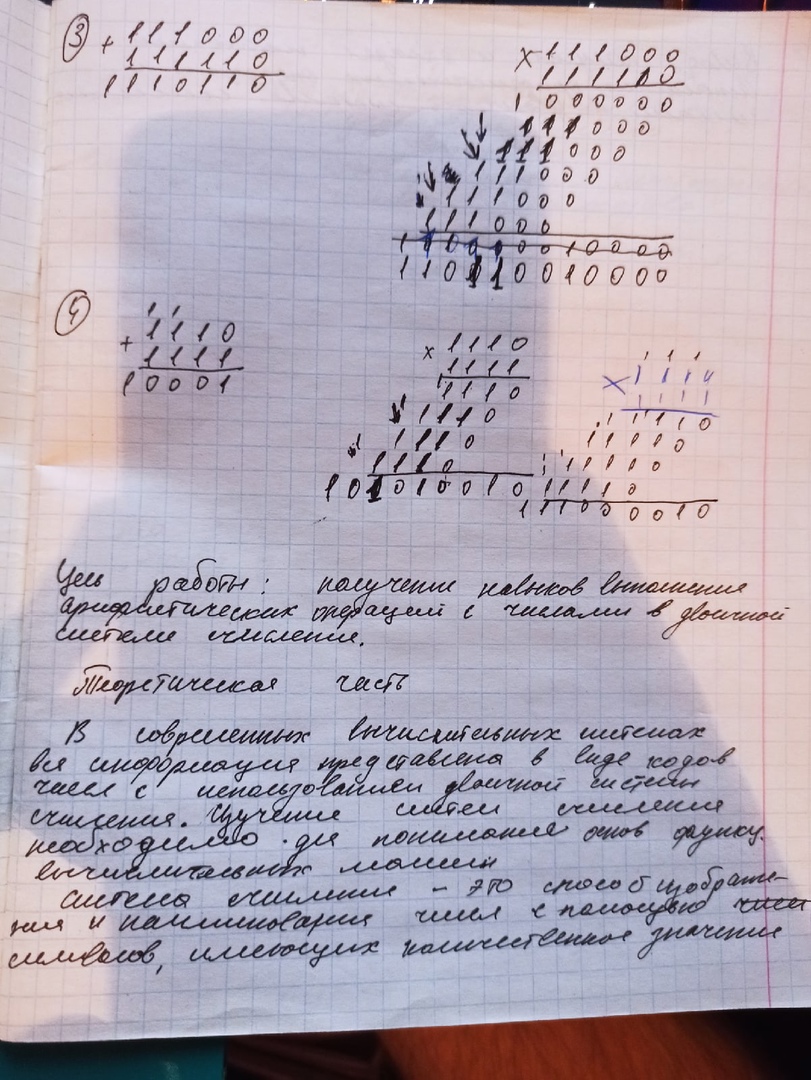 ③ + 111000
111110
1110110
× 111000
111110
1000000
111000
111000
111000
111000
111000
110000010000
110110010000
④
1 1
+ 1110
1111
10001
× 1110
1111
1110
1110
1110
1110
1010100010
1 1 1
× 1110
1111
1110
11110
11110
11110
11100010
Цель работы: получение навыков выполнения
арифметических операций с числами в двоичной
системе счисления.
Теоретическая часть
В современных вычислительных системах
вся информация представлена в виде кодов
чисел с использованием двоичной системы
счисления. Изучение систем счисления
необходимо для понимания основ функц.
вычислительных машин
Система счисления – это способ изображе-
ния и наименования чисел с помощью
символов, имеющих количественное значение